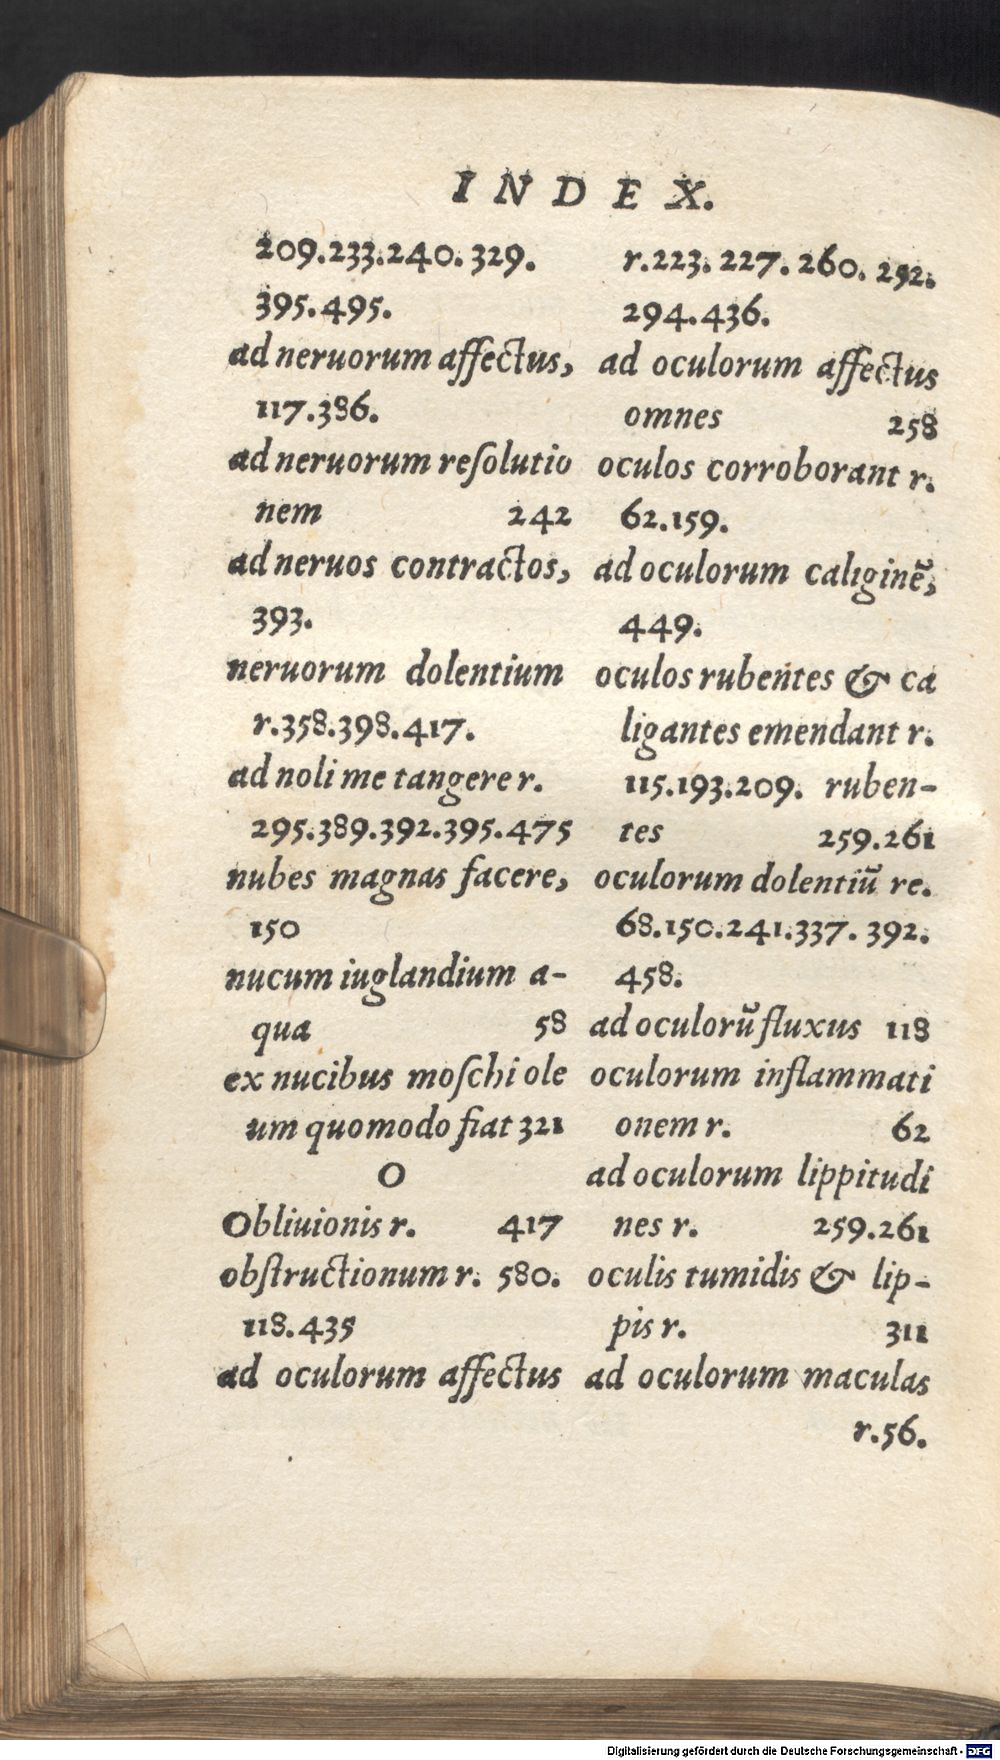 INDEX.
209.233.240.329.
395.495.
ad neruorum affectus,
117.386.
ad neruorum reſolutio
nem 242
ad neruos contractos,
393.
neruorum dolentium
r.358.398.417.
ad noli me tangere r.
295.389.392.395.475
nubes magnas facere,
150
nucum iuglandium a-
qua 58
ex nucibus moſchi ole
um quomodo fiat 321
O
Obliuionis r. 417
obſtructionum r. 580.
118.435
ad oculorum affectus
r.223.227.260.292.
294.436.
ad oculorum affectus
omnes 258
oculos corroborant r.
62.159.
ad oculorum caliginẽ,
449.
oculos rubentes & ca
ligantes emendant r.
115.193.209. ruben-
tes 259.261
oculorum dolentiũ re.
68.150.241.337.392.
458.
ad oculorũ fluxus 118
oculorum inflammati
onem r. 62
ad oculorum lippitudi
nes r. 259.261
oculis tumidis & lip-
pis r. 311
ad oculorum maculas
r.56.
Digitalisierung gefördert durch die Deutsche Forschungsgemeinschaft - DFG